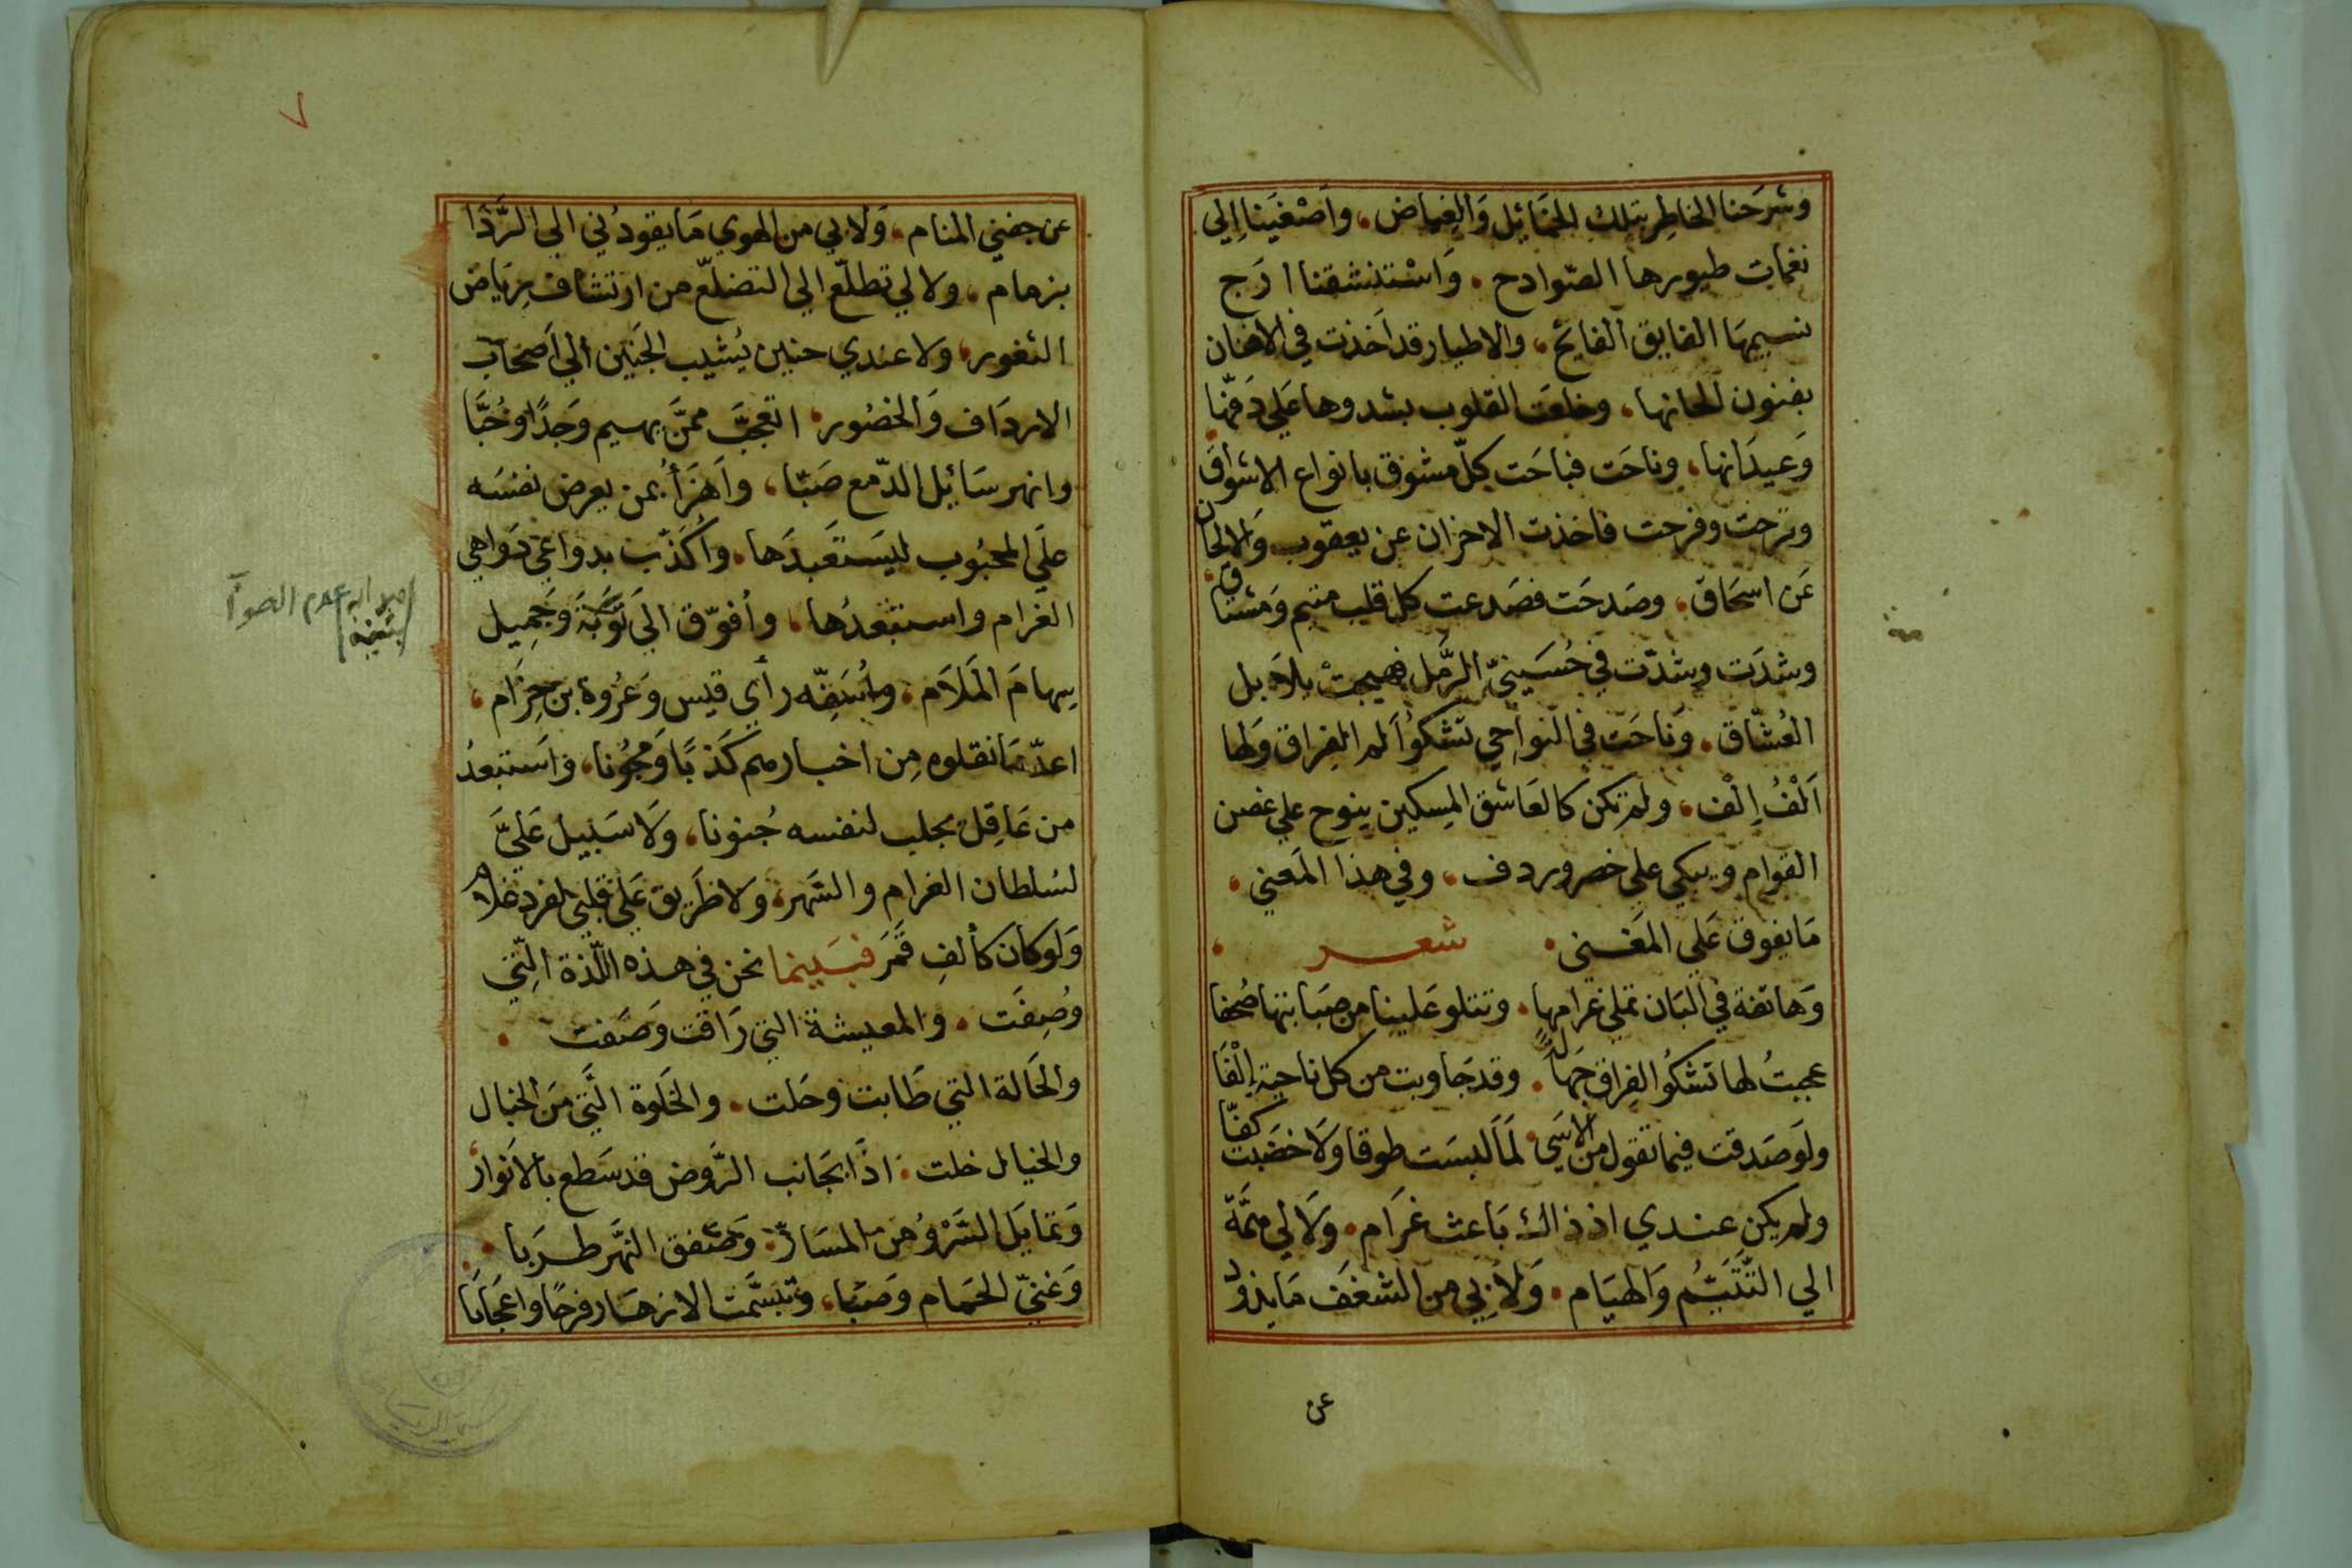 وشرَحنا الخاطِر بتلك الخمَائِل وَالغِياض، وأصْغَينا إلي
نغمات طيورها الصّوادح . وَاسْتنشقنا ارَج
نسيمهَا الفايق الفايح، والاطيار قد اَخذت في الافنان
بفنون الحانها، وخلعَت القلوب بشدوها عَلي دَفّها
وَعيدَانها، وناحَت فباحَت كلّ مشوق بانواع الاشواق
وترحت وفرحت فاخذت الاحزان عن يعقوب وَالالحان
عَن اسحَاق، وصَدحَت فصَدعت كل قلب متيم وَمشتاق
وشدَت وشدّت في حُسَينيّ الرَّمل فهيجتْ بلاَبل
العُشّاق . وَناحَت في النواحي تشكواُ الم الفِراق وَلها
اَلْفُ اِلْف، ولم تكن كالعَاشق المِسكين ينوح علي غصن
القوام ويبكي علي خصر وردف، وفي هذا المَعني،
مَا يفوق عَلي المَغني . شعر
وَهاتفة في البَان تملي غرامها . وتتلو عَلينا من صَبَابتها صُحفا
عجبتُ لها تشكُوا الفِراق جَهالةً . وقد جَاوبت من كل ناحية إلْفَا
ولَو صَدقت فيما تقول من الاسَي . لَمَا لبسَت طوقا وَلا خضَبت كفّا
ولم يكن عندي اذ ذاك بَاعث غرَام . وَلا لي همَّة
الي التَّتَيُّم وَالهيَام . وَلا بي من الشغَف مَا يذود
عن
٧
عن جفني المنام، وَلا بي من الهوي مَا يقودُني الي الرَّدَا
بزمام، ولا لي تطلّع الي التضلّع من ارتشاف رِيَاض
الثغور، ولا عندي حنين يُشيب الجَنين الي اَصْحَاب
الاردَاف وَالخصُور، اتعجَّب ممَّن يهيم وَجدًا وحُبَّا
وانهر سَائِل الدّمع صَبّا، واَهزَأُ بمن يعرض نفسَه
علَي المحبُوب ليسَتعَبدَها . واُكَذّب بدواعي دَواهي
الغرام واستبعدُها، وأفوّق الَى تَوْبَةَ وَجَمِيل
سِهامَ المَلاَم، وأُسَفّه رأي قيس وَعُروة بن حِزَام،
اعدّ مَا نقلوه مِن اخبارهم كَذبًا وَمجُونا، وَاَستبعدُ
من عَاقِل يجلب لنفسه جُنونا، وَلا سَبيل عَليَّ
لسُلطان الغرام والسَّهر، وَلا طَريق عَلي قلبي لفرد غلام
وَلو كانَ كألفِ قمَر فبَينما نحن في هذه اللّذة الّتي
وُصِفَت . والمعيشة التي رَاقت وَصَفت .
والحَالة التي طَابت وحَلت . والخَلوة الّتي مَن الخيال
والخيال خلت . اذَا بجَانب الرَّوض قد سَطع بالاَنوار
وَتمايَل السَّرْوُ من المسَارّ، وَصَفق النَّهر طرَبا .
وَغنيّ الحَمام وَصَبا، وَتبسَّمت الازهار فرحًا واعجَابَا
بثينة